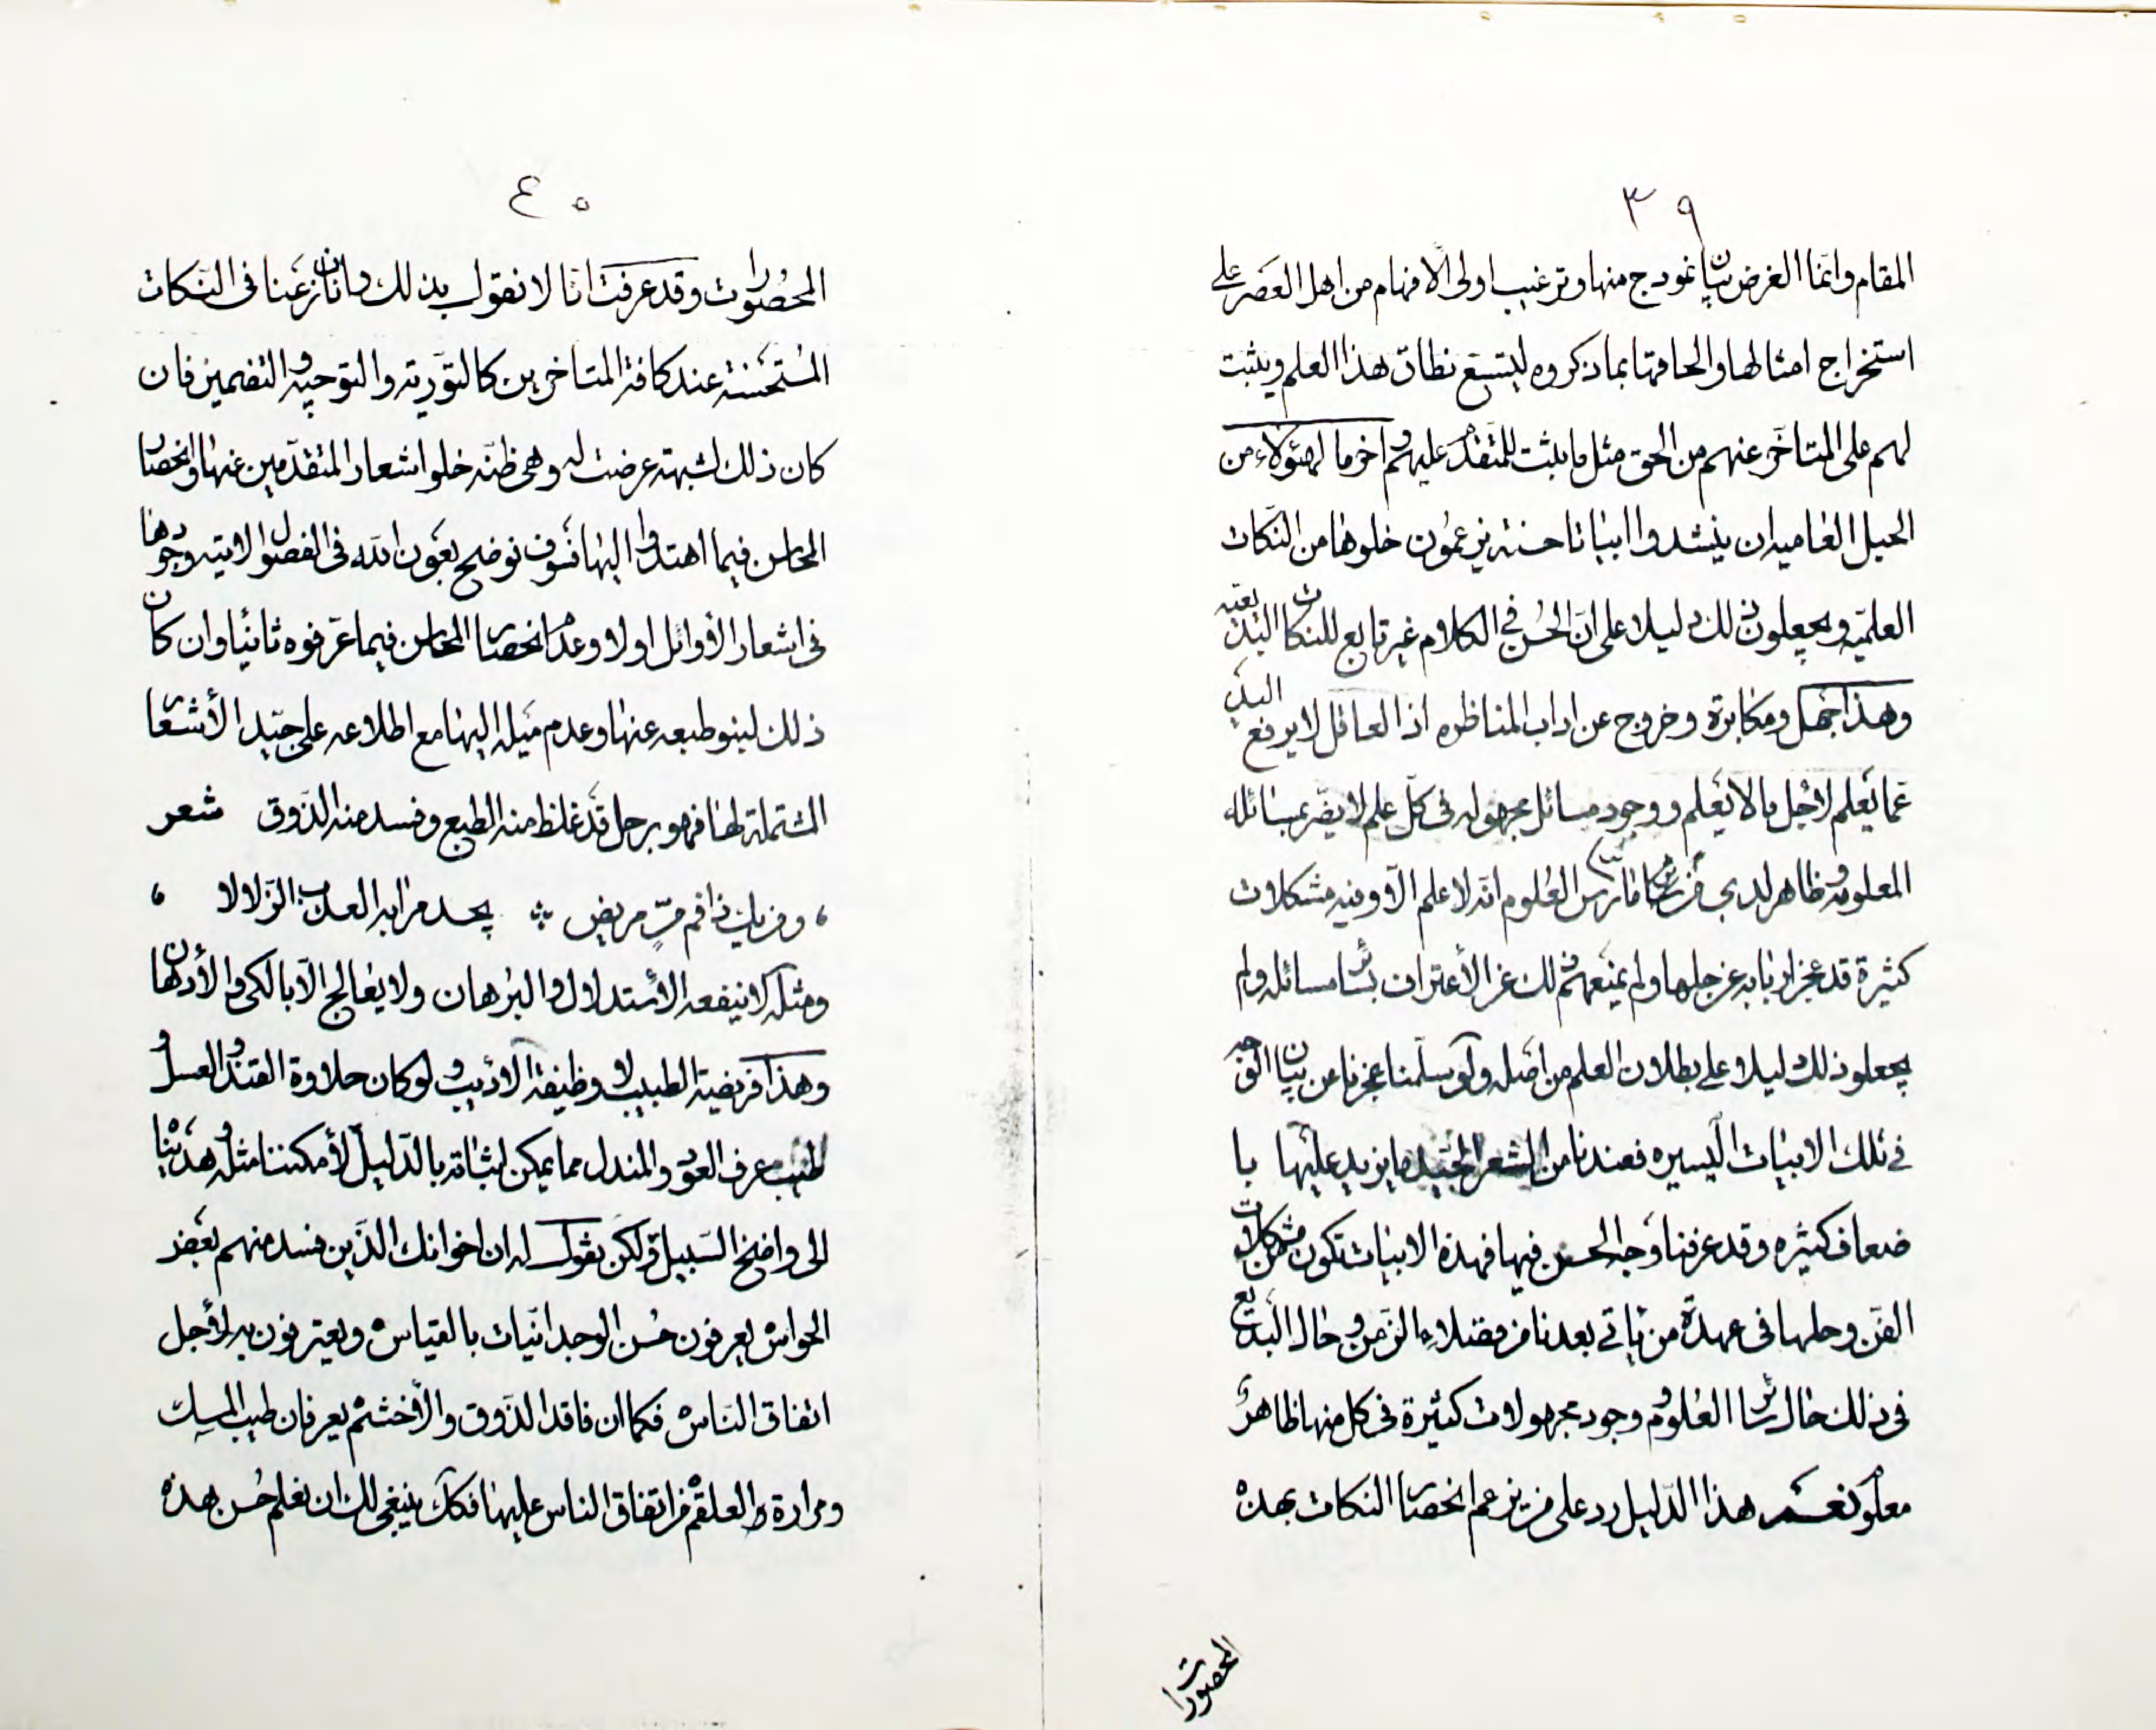 ٣٩
المقام وانما الغرض بيان انموذج منها وترغيب اولى الافهام من اهل العصر على
استخراج امثالها والحاقها بما ذكروه ليتسع نطاق هذا العلم ويثبت
لهم على المتاخر عنهم من الحق مثل ما يثبت للمتقدم عليهم واخر ما لهؤلاء من
الحيل العاميه ان ينشدوا ابياتا حسنة يزعمون خلوها من النكات
العلميه ويجعلون ذلك دليلا على ان الحسن في الكلام غير تابع للنكات البديعيه
وهذا جهل ومكابرة وخروج عن اداب المناظره اذ العاقل لا يرفع اليد
عما يعلم لاجل ما لا يعلم ووجود مسائل مجهوله فى كل علم لا يضر بمسائله
المعلومه وظاهر لدى من مارس العلوم انه لا علم الا وفيه مشكلات
كثيرة قد عجز اربابه عن حلها ولم يمنعهم ذلك عن الأعتراف بسائر مسائله ولم
يجعلو ذلك دليلا على بطلان العلم من اصله ولو سلمنا عجزنا عن بيان الوجه
في تلك الابيات اليسيره فعندنا من الشعر الجيد ما يزيد عليها با
ضعاف كثيره وقد عرفنا وجه الحسن فيها فهذه الابيات تكون من مشكلات
الفن وحلها فى عهدة من ياتي بعدنا من فضلاء الزمن وحال البديع
فى ذلك حال سائر العلوم ووجود مجهولات كثيرة فى كل منها ظاهر
معلوم نعم هذا الدليل رد على من يزعم انحصار النكات بهذه
المحصورات
٤٠
المحصورات وقد عرفت انا لا نقول بذلك وان نازعنا فى النكات
المستحسنة عند كافة المتاخرين كالتورية والتوجيه والتضمين فان
كان ذلك لشبهة عرضت له وهى ظنه خلو اشعار المتقدمين عنها وانحصار
المحاسن فيما اهتدوا اليها فسوف نوضح بعون الله فى الفصول الاتيه وجودها
فى اشعار الأوائل اولا وعدم انحصار المحاسن فيما عرفوه ثانيا وان كان
ذلك لنبو طبعه عنها وعدم ميله اليها مع اطلاعه على جيد الأشعار
المشتملة لها فهو رجل قد غلظ منه الطبع وفسد منه الذوق شعر
ومن يك ذا فم مر مريض يجد مرا به العذب الزلالا
ومثله لا ينفعه الاستدلال والبرهان ولا يعالج الا بالكى والأدهان
وهذا فريضة الطبيب لا وظيفة الاديب ولو كان حلاوة القند والعسل
وطيب عرف العود والمندل مما يمكن اثباته بالدليل لأمكننا مثله وهديناه
الى واضح السبيل ولكن يقول له ان اخوانك الذين فسد منهم بعض
الحواس يعرفون حسن الوجدانيات بالقياس ويعترفون به لأجل
اتفاق الناس فكما ان فاقد الذوق والأخشم يعرفان طيب المسك
ومرارة العلقم من اتفاق الناس عليها فكك ينبغى لك ان تعلم حسن هذه